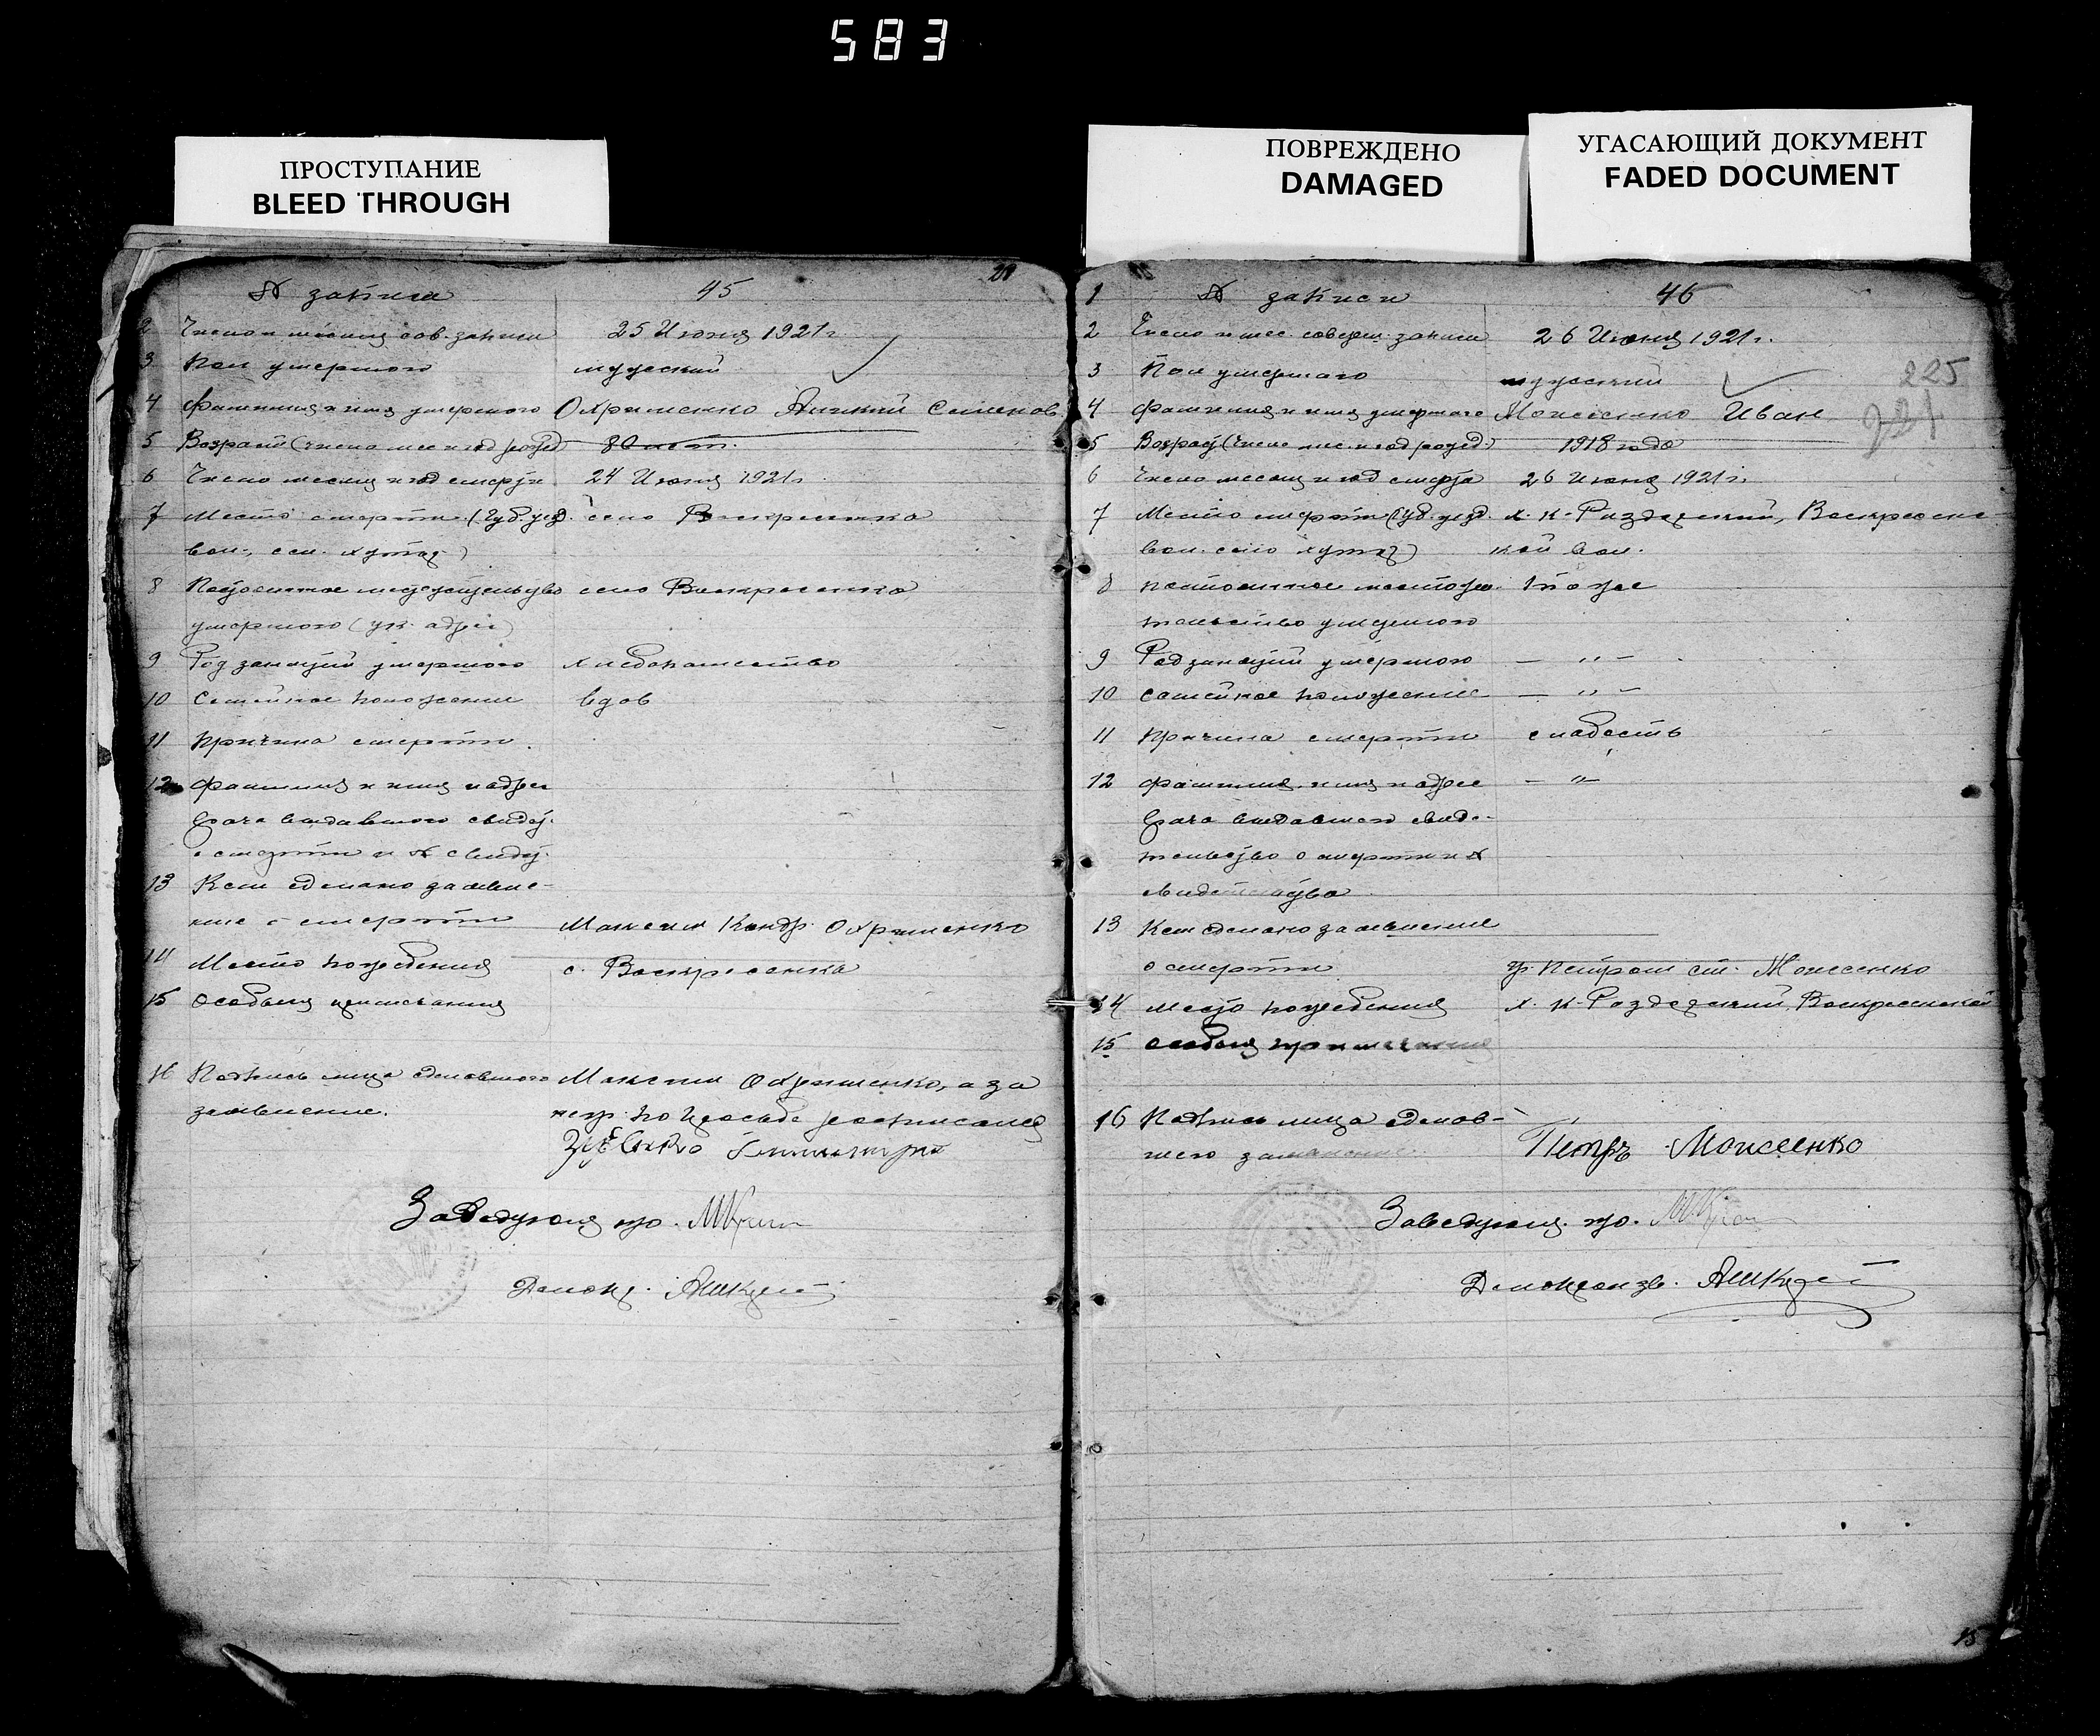 583
ПРОСТУПАНИЕ
BLEED THROUGH
ПОВРЕЖДЕНО
DAMAGED
УГАСАЮЩИЙ ДОКУМЕНТ
FADED DOCUMENT
№ записи 45
2 Число и месяц сов. записи 25 Июня 1921 г
3 Пол умершого мужской
4 Фамилия и имя умершого Охрименко Семенов
5 Возраст (число мес и год рожд) 80 лет.
6 Число месяц и год смерти 24 Июня 1921 г
7 Место смерти (Губ. уезд. село Воскресенка
вол., сел. хутор)
8 Постоянное местожительство село Воскресенка
умершого (ук. адрес)
9 Род занятий умершого хлебопашество
10 Семейное положение вдов
11 Причина смерти.
12 Фамилия и имя и адрес
врача выдавшого свидет.
о смерти и № свидет.
13 Кем сделано заявле-
ние о смерти Максим Кондр. Охрименко
14 Место погребения с. Воскресенка
15 Особыя примечания
16 Подпись лица сделавшого Максим Охрименко, а за
заявление. негр. по просьбе росписался
Заведующ. про.
Делопр.
1 № записи 46
2 Число и мес. соверш. записи 26 Июня 1921 г.
3 Пол умершого мужский
225
4 Фамилия и имя умершого Моисеенко Иван
5 Возраст (число мес. и год рожд.) 1918 года
6 Число месяц и год смерти 26 Июня 1921 г.
7 Место смерти (Губ. уезд. х. К-Раздорский, Воскресенс-
вол. село хутор) кой вол.
8 Постоянное местожи- тоже
тельство умершого
9 Род занятий умершого — „ —
10 Семейное положение — „ —
11 Причина смерти слабость
12 Фамилия, имя и адрес — „ —
врача выдавшого свиде-
тельство о смерти и №
свидетельства
13 Кем сделано заявление
о смерти гр. Петром ст. Моисеенко
14 Место погребения х. К-Раздорский, Воскресенской
15 Особыя примечания
16 Подпись лица сделав-
шего заявление Петръ Моисеенко
Заведующ. про.
Делопроизв.
15